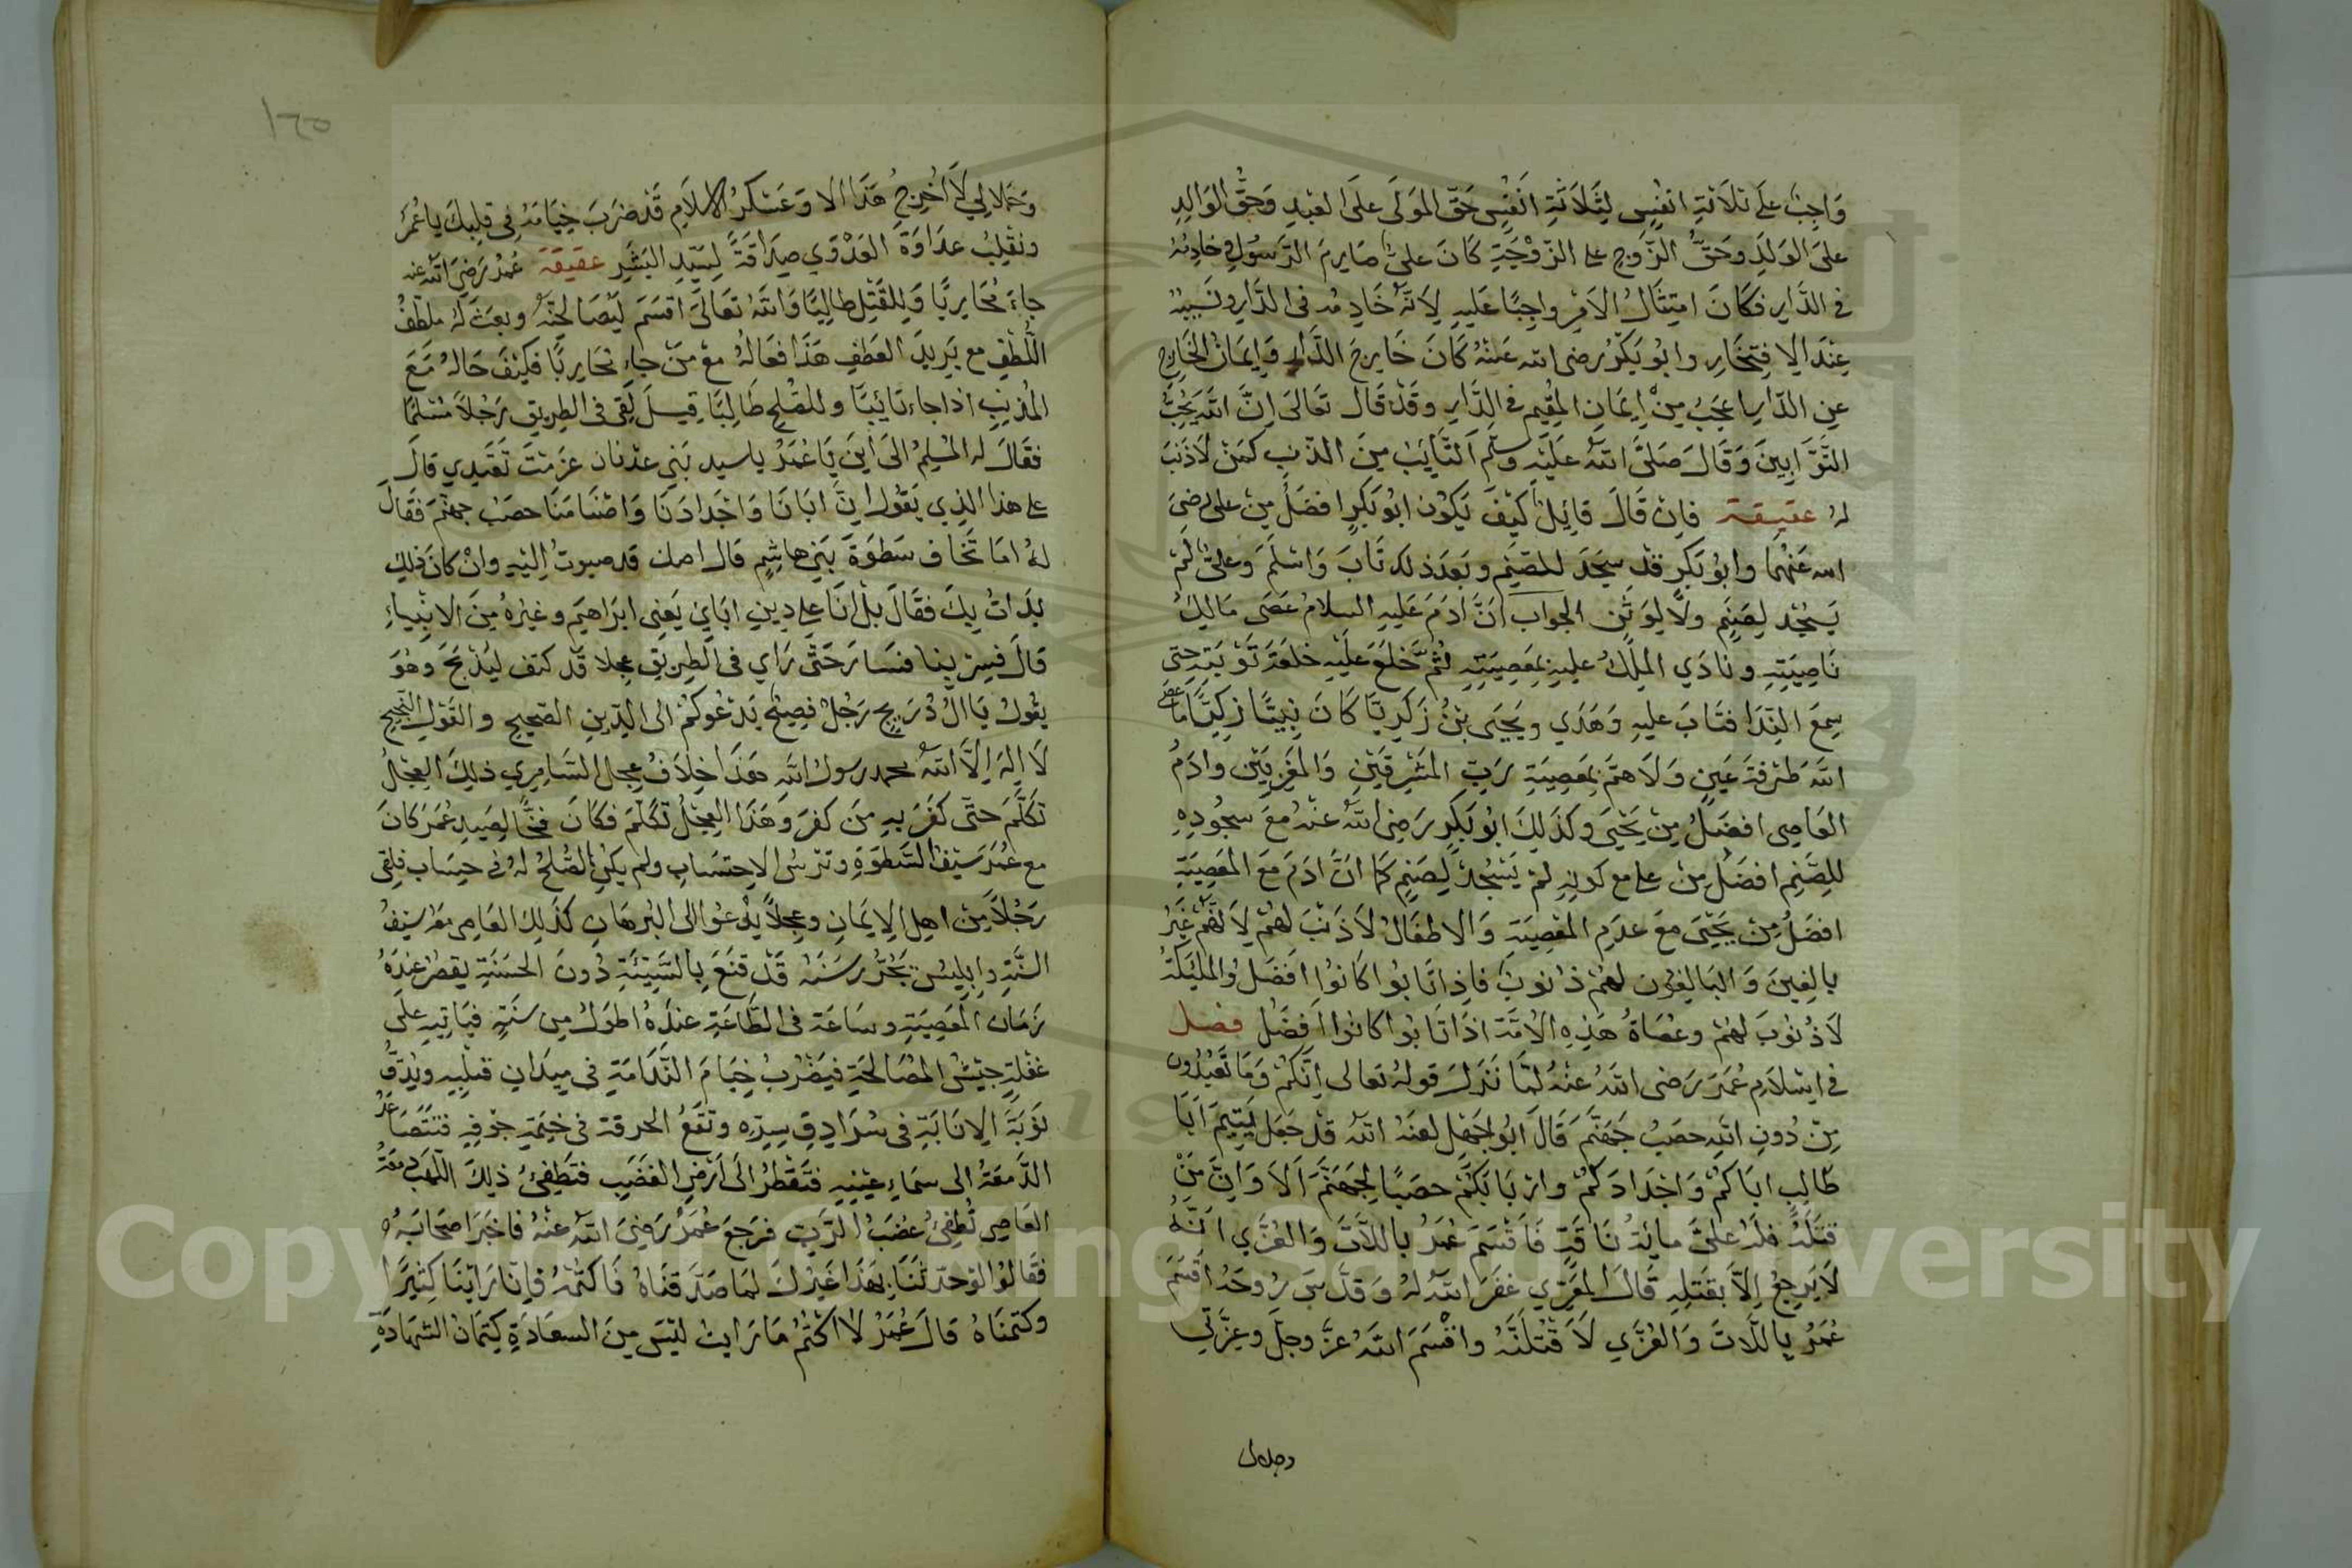 وَاجِبٌ عَلَى ثَلَاثَةِ انفُسٍ لِثَلَاثَةِ اَنْفُسٍ حَقّ المَوْلَى عَلَى العَبْدِ وَحَقُّ الوَالِدِ
عَلَى الوَلَدِ وَحَقُّ الزَّوجِ على الزَّوْجَةِ كَانَ عَلىٌّ صَارِمَ الرَّسُولِ وَخادِمُهُ
فى الدَّارِ فَكَانَ امتِثَالُ الاَمْرِ واجِبًا عَلَيهِ لِاَنَّهُ خَادِمُهُ فى الدَّارِ ونَسِيبُهُ
عِنْدَ الاِفتِخَارِ وابُو بَكْرٍ رضى الله عَنْهُ كَانَ خَارِجَ الدَّارِ وَاِيمَانُ الخَارِجِ
عن الدَّارِ اعجَبُ مِنْ اِيمَانِ المُقِيمِ فى الدَّارِ وقَدْ قَالَ تَعَالَى اِنَّ اللهَ يُحِبُّ
التَّوَّابِينَ وَقَالَ صَلَّى اللهُ عَلَيْهِ وسَلَّم اَلتَّايِبُ مِنَ الذَّنبِ كمَنْ لَاذَنبَ
لهُ عقيقة فاِنْ قَالَ قائِلٌ كَيْفَ يَكُون ابُو بَكرٍ افضَلُ مِنْ على رَضِىَ
الله عَنْهُمَا وابُو بَكرٍ قَدْ سَجَدَ للصَّنَمِ وبَعدَ ذلك تَابَ وَاسْلَمَ وَعلىٌّ لَمْ
يَسْجُد لِصَنَمٍ ولَا لِوَثَنٍ الجواب اَنَّ ادَمَ عَلَيهِ السلامُ عَصَى مَالِكَ
نَاصِيَتِهِ ونادَي المَلِكُ عليهِ بِمَعصِيَتِهِ ثُمَّ خَلَعَ عَلَيْهِ خلعَةَ تَوْبَتِهِ حتى
سمِعَ النِّدَا فتَابَ عليهِ وَهَدَي ويَحيَى بْنُ زَكَرِيَّا كَانَ نبِيًّا زكِيًّا مَا عصَى
اللهَ طَرْفَةَ عَينٍ وَلَا هَمَّ بِمَعصِيَةِ رَبِّ المَشْرِقَيْنِ وَالمَغْرِبَيْن وادَمُ
العَاصِى افضَلُ مِنْ يَحْيَى وكَذَلِكَ ابُو بَكرٍ رَضِى اللهُ عَنْهُ مَعَ سجُودِهِ
لِلصَّنَمِ افضَلُ مِنْ على مع كونِهِ لَمْ يَسْجُدْ لِصَنَمٍ كمَا انَّ ادَمَ مَعَ المَعصِيَةِ
افضَلُ مِنْ يَحْيَى مَعَ عدَمِ المَعْصِيَةِ وَالاطفَالُ لَاذَنْبَ لَهُم لِاَنَّهُمْ غَيرُ
بالِغِينَ وَالبَالِغُون لهمْ ذُنُوبٌ فَاِذا تَابُوا كَانُوا افضَلُ وَالمَلئِكَةُ
لَا ذُنُوبَ لَهُمْ وعُصَاةُ هَذِهِ الاُمَّةِ اذَا تَابُوا كانُوا افضَلُ فصل
فى اسْلَامِ عُمَرَ رَضى اللهُ عَنْهُ لَمَّا نَزَلَ قولهُ تعالى اِنَّكُمْ وَمَا تَعْبُدُون
مِنْ دُونِ اللهِ حصَبُ جَهَنَّمَ قَالَ ابُو جَهْلٍ لعَنهُ اللهُ قَدْ جَعَلَ يَتِيمُ اَبَا
طَالِبٍ ابَاكُمْ وَاَجْدَادَكُمْ وارْبَابَكُمْ حصَبًا لِجَهَنَّمَ اَلَا وَاِنَّ مَنْ
قتَلَهُ فلَهُ عَلَيَّ مايَةُ نَاقَةٍ فَاَقْسَمَ عُمَرُ باللَّاتَ وَالعُزَّي اَنَّهُ
لَا يَرجِعُ اِلَّا بقَتلِهِ قَالَ المَعَزِّي غفَرَ اللهُ لهُ وَقدْ سَرَ رُوحَهُ اقسَمَ
عُمَرُ باللَّاتَ وَالعُزَّي لَاَقْتُلَنَّهُ واقْسَمَ اللهُ عزَّ وجلَّ وعِزَّتي
وجلالى
١٢٥
وَجَلالِي لَا اُخْرِجُ هَذَا الا وَعَسْكَرُ الاسلَامِ قَدْ ضَرَبَ خِيَامَهُ فى قلبِكَ ياعُمَرَ
ونَقْلِبُ عدَاوَةَ العَدَوِي صِدَاقَةً لِسَيّدِ البَشَرِ عقيقة عُمَرُ رَضِىَ اللهُ عنه
جاءَ مُحَارِبًا وَلِلقَتْلِ طالِبًا وَاللهُ تَعَالَى اقسَمَ لَيُصَالِحَنَّهُ وبعَثَ لهُ ملطّفُ
اللُّطْفِ مع بَرِيدَ العَطفِ هَذَا فعَالهُ مع مَنْ جاءَ مُحَارِبًا فكَيْفَ حَالهُ مَعَ
المُذنِبِ اذا جاء تائِبًا وللصُّلحِ طَالِبًا قِيلَ لَقِىَ فى الطريقِ رَجُلاً مُسْلمًا
فقَالَ له المُسْلِمُ الىَ اَينَ يَا عُمَرُ ياسيد بَنِى عدْنان عزَمْتَ تَقصِدِي قالَ
على هذا الذِي يَقُولُ اِنَّ ابَانَا وَاَجْدادَنَا وَاصْنَامَنَا حصَبُ جهنَّمَ فَقَالَ
لهُ امَا تَخَاف سَطوَةَ بَنِى هاشِمٍ قال قد صبوتَ اِلَيْهِ وانْ كانَ ذلِكَ
بدَاتُ بِكَ فقَالَ بلْ انَا عَلى دينِ ابَايِ يَعنِى ابرَاهيمَ وغيْرهُ مِنَ الانبِيَاءِ
قَالَ فسِرْ بِنا فسَارَ حَتَّى رَاي فى الطرِيقِ عجلا قَد كتف ليُذْبَحَ وهُوَ
يقُولُ يَا الُ ذُرَيحٍ رَجُلٌ فصِيحٌ يَدْعُوكُمْ الى الدّينِ الصَّحِيحِ والقَوْلِ النَّجِيحِ
لَا اِلهَ اِلَّا اللهُ محمد رسول الله هَذَا خلَافُ عِجلِ السَّامِرِي ذلِكَ العِجلُ
تكلَّمَ حتَّى كفَرَ بهِ مَن كفَرَ وَهَذَا العِجْلُ تكَلَّمَ فكَانَ فخًّا لِصَيدِ عُمَرَ كانَ
مع عُمَرَ سَيْفُ السَّطوَةِ وتُرسُ الاِحتسَابِ ولم يَكُنِ الصُّلحُ لهُ فى حِسَابٍ فلقى
رَجُلاً مِنْ اهلِ الاِيمَانِ وعِجلاً يَدْعُوا الى البُرهَانِ كذَلِكَ العَاصِى مَعَهُ سَيفُ
النيَّةِ وابليسُ قَدْ قنَعَ بِالسَّيِئَةِ دُونَ الحسَنَةِ يقصُرُ عندَهُ
زَمَان المَعصِيَةِ وسَاعَة فى الطَّاعَةِ عندَهُ اطوَلُ مِن سَنَةٍ فيَاتِيهِ علَى
غفلَةٍ جَيْشُ المُصَالحَةِ فيَضْرُبُ خِيَامَ النَّدَامَةِ فى ميدَانِ قلبِهِ ويُدقُّ
نَوْبَةَ الاِنَابَةِ فى سُرَادِقِ سِرِّهِ وتقَعُ الحرقة فى خيمَةِ جَوفِهِ فتتصَاعَدُ
الدَّمعَةُ الى سمَاءِ عيْنيهِ فتَقطرُ الىَ اَرضِ الغَضَبِ فتطفِئُ ذلِكَ اللَّهب دمعَةُ
العَاصِى تُطفِئُ غضَبُ الرَّبِّ فرَجَعَ عُمَرُ رَضِىَ اللهُ عَنْهُ فاخبَرَ اصحَابَهُ
فقَالُوا لَوْ حدّثَنَا بِهَذَا غَيْرُكَ لمَا صَدَّقنَاهُ فَاكتُمْهُ فاِنَّا رَاَيْنَا كثِيرًا
وكتمنَاهُ قالَ عُمَرُ لَا اكتُمُ مَا رَايتُ ليْسَ مِنَ السعَادَةِ كِتمَانُ الشهَادَةِ
Copyright © King Saud University